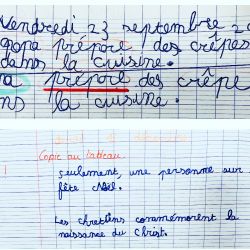 Vendredi 23 septembre 20
prépare des crêpes
dans la cuisine.
prépare des crêpe
ns la cuisine.
Copie au tableau.
seulement, une personne sur
fête Noël.
Les chrétiens commémorent la
naissance du Christ.